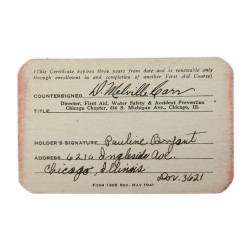 (This Certificate expires three years from date and is renewable only
through enrollment in and completion of another First Aid Course)
COUNTERSIGNED D. Melville Carr
Director, First Aid, Water Safety & Accident Prevention
TITLE Chicago Chapter, 616 S. Michigan Ave., Chicago, Ill.
HOLDER'S SIGNATURE Pauline Bryant
ADDRESS 6216 Ingleside Ave.
Chicago, Illinois
Dor. 3621
FORM 1205 REV. MAY 1941